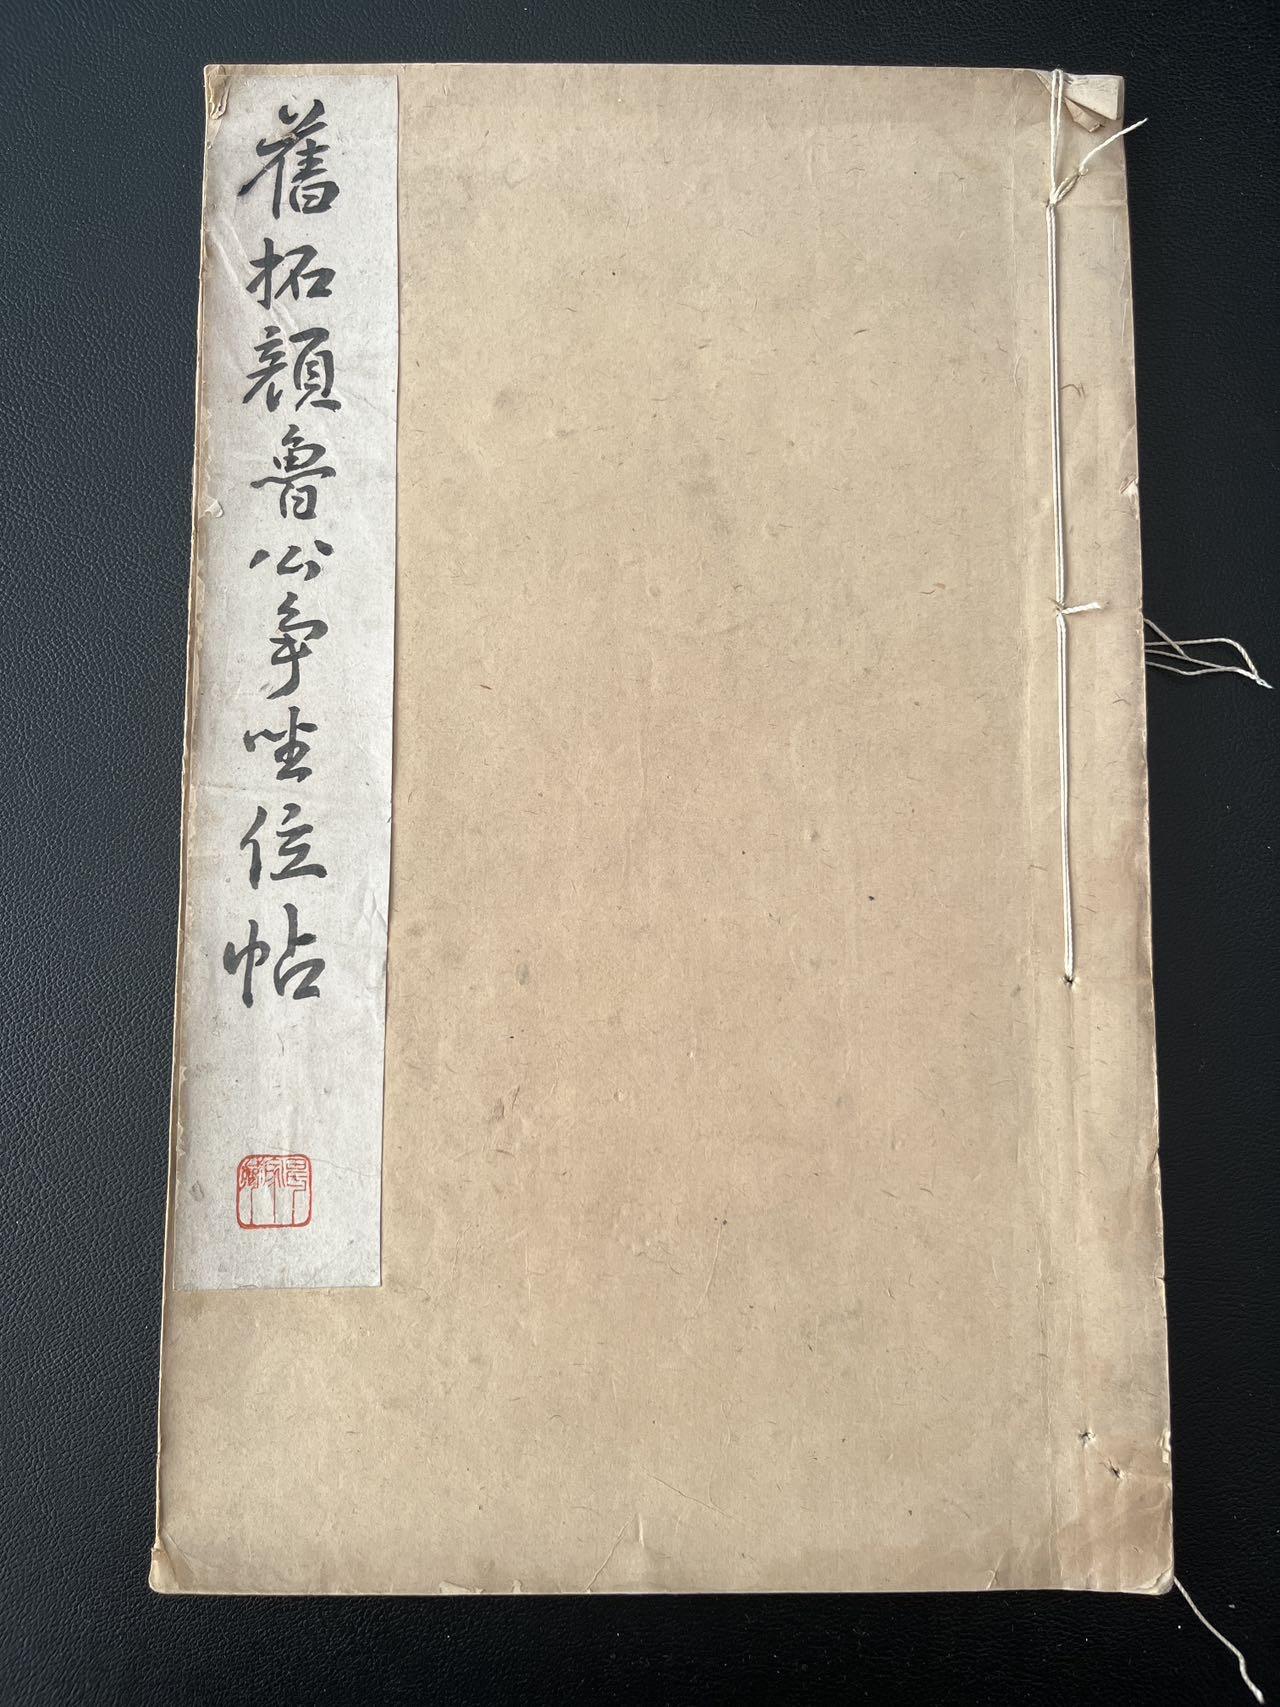 舊拓顏魯公爭坐位帖